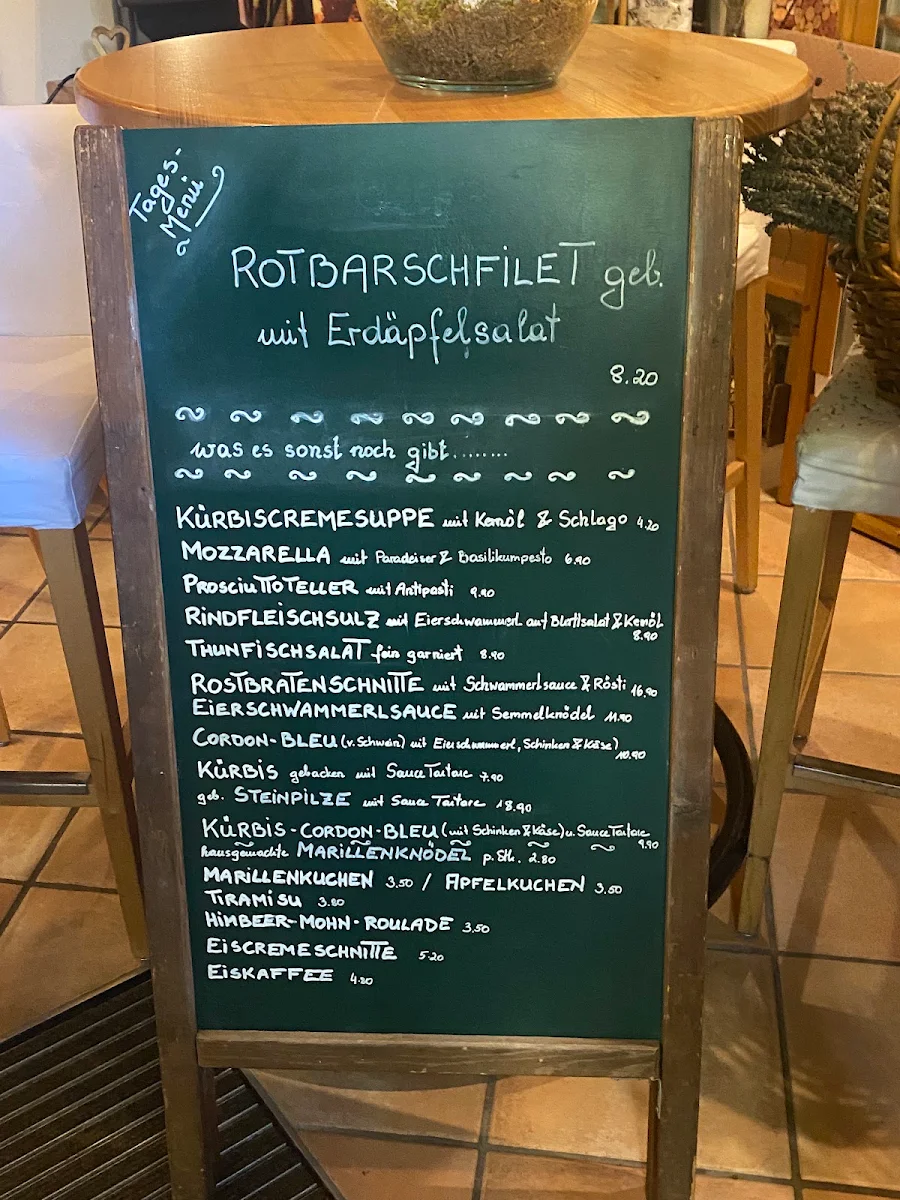 Tages-
Menü
ROTBARSCHFILET geb.
mit Erdäpfelsalat
8.20
was es sonst noch gibt........
KÜRBISCREMESUPPE mit Kernöl & Schlago 4.20
MOZZARELLA mit Paradeiser & Basilikumpesto 6.90
PROSCIUTTOTELLER mit Antipasti 9.90
RINDFLEISCHSULZ mit Eierschwammerl auf Blattsalat & Kernöl
8.90
THUNFISCHSALAT fein garniert 8.90
ROSTBRATENSCHNITTE mit Schwammerlsauce & Rösti 16.90
EIERSCHWAMMERLSAUCE mit Semmelknödel 11.90
CORDON-BLEU (v. Schwein) mit Eierschwammerl, Schinken & Käse)
10.90
KÜRBIS gebacken mit Sauce Tartare 7.90
geb. STEINPILZE mit Sauce Tartare 18.90
KÜRBIS-CORDON-BLEU (mit Schinken & Käse) u. Sauce Tartare
9.90
hausgemachte MARILLENKNÖDEL p. Stk. 2.80
MARILLENKUCHEN 3.50 / APFELKUCHEN 3.50
TIRAMISU 3.80
HIMBEER-MOHN-ROULADE 3.50
EISCREMESCHNITTE 5.20
EISKAFFEE 4.80